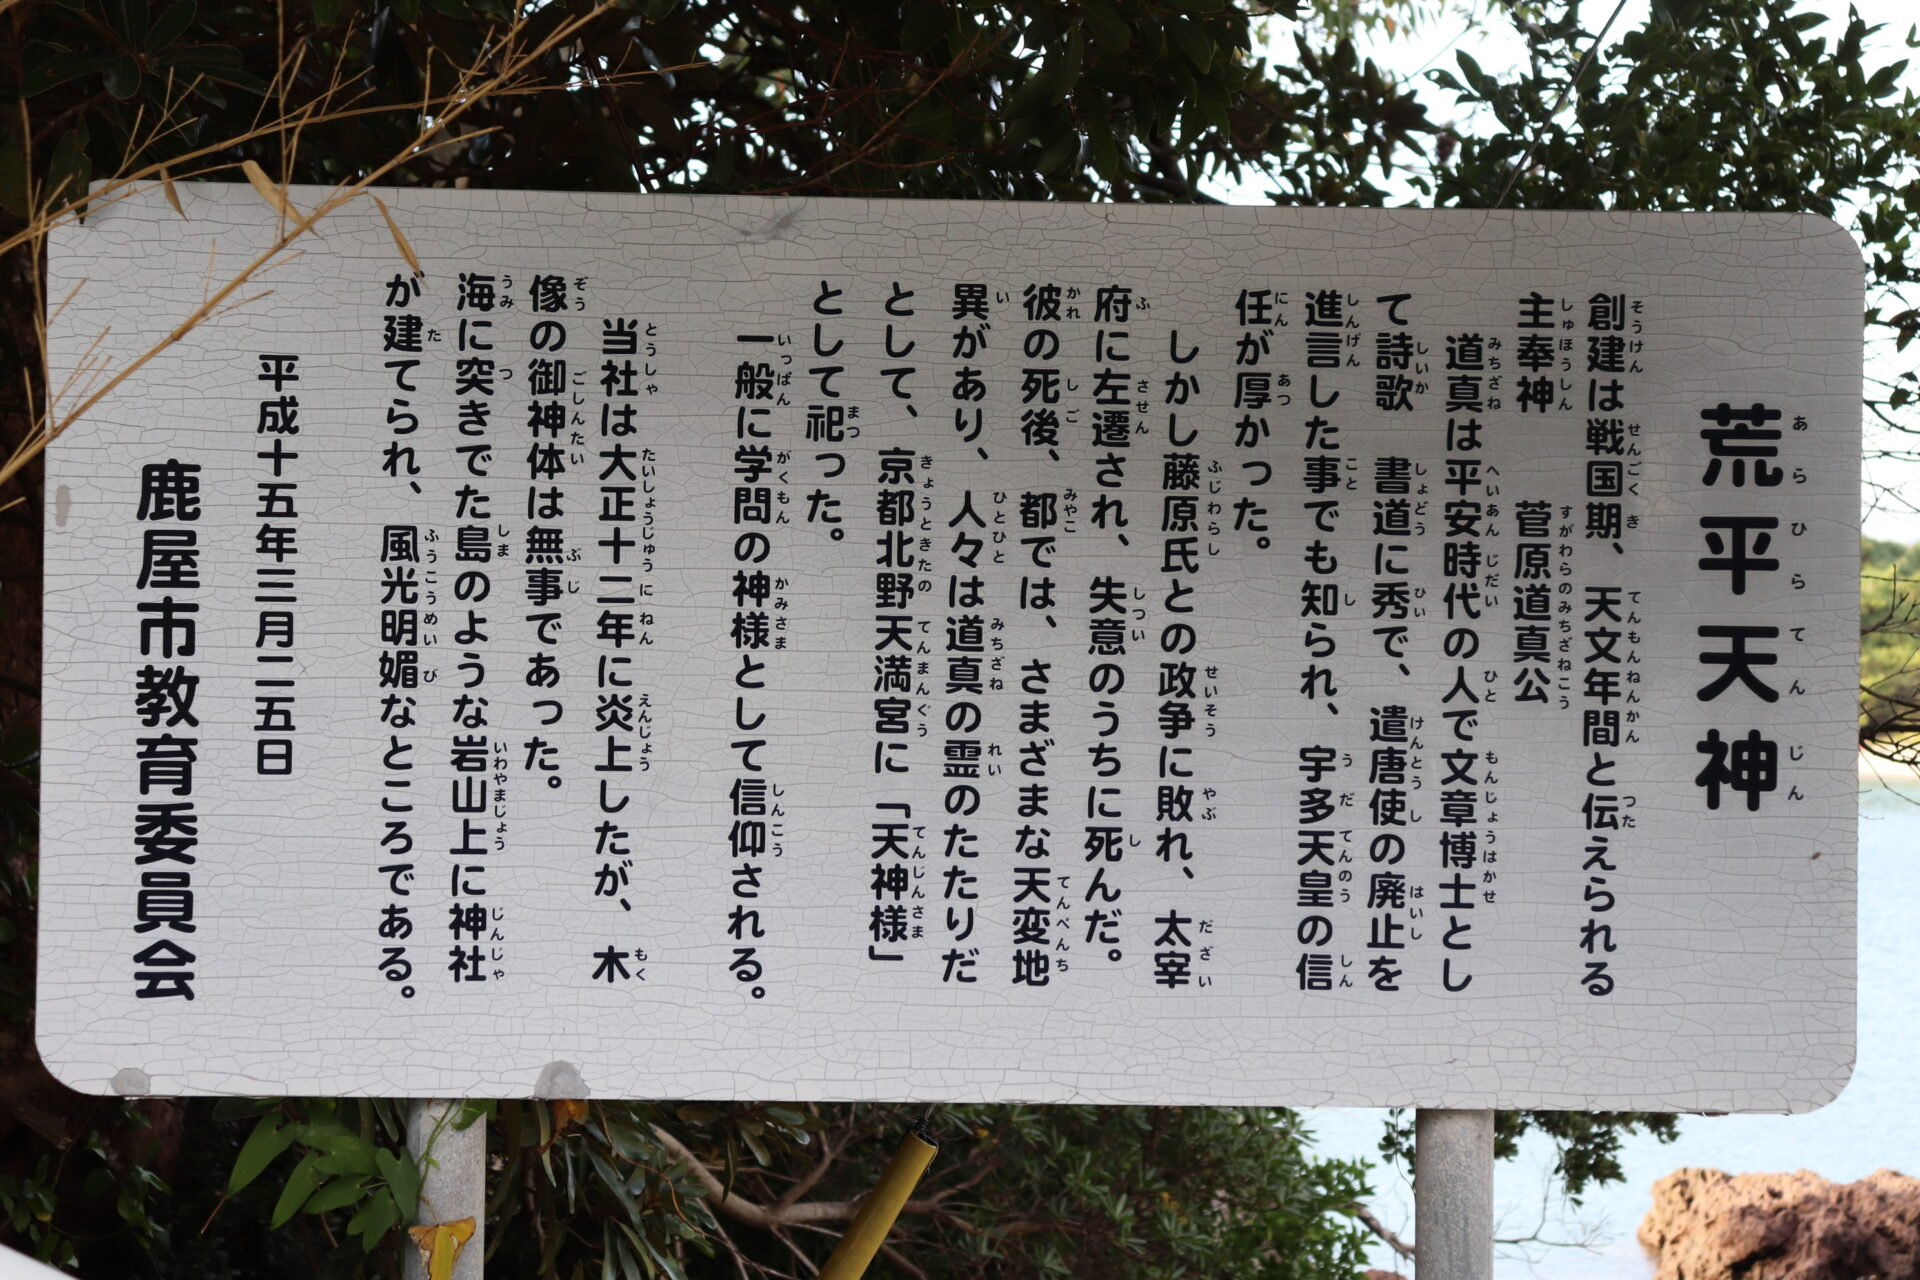 荒平天神
創建は戦国期、天文年間と伝えられる
主奉神　菅原道真公
道真は平安時代の人で文章博士とし
て詩歌　書道に秀で、遣唐使の廃止を
進言した事でも知られ、宇多天皇の信
任が厚かった。
しかし藤原氏との政争に敗れ、太宰
府に左遷され、失意のうちに死んだ。
彼の死後、都では、さまざまな天変地
異があり、人々は道真の霊のたたりだ
として、京都北野天満宮に「天神様」
として祀った。
一般に学問の神様として信仰される。
当社は大正十二年に炎上したが、木
像の御神体は無事であった。
海に突きでた島のような岩山上に神社
が建てられ、風光明媚なところである。
平成十五年三月二五日
鹿屋市教育委員会